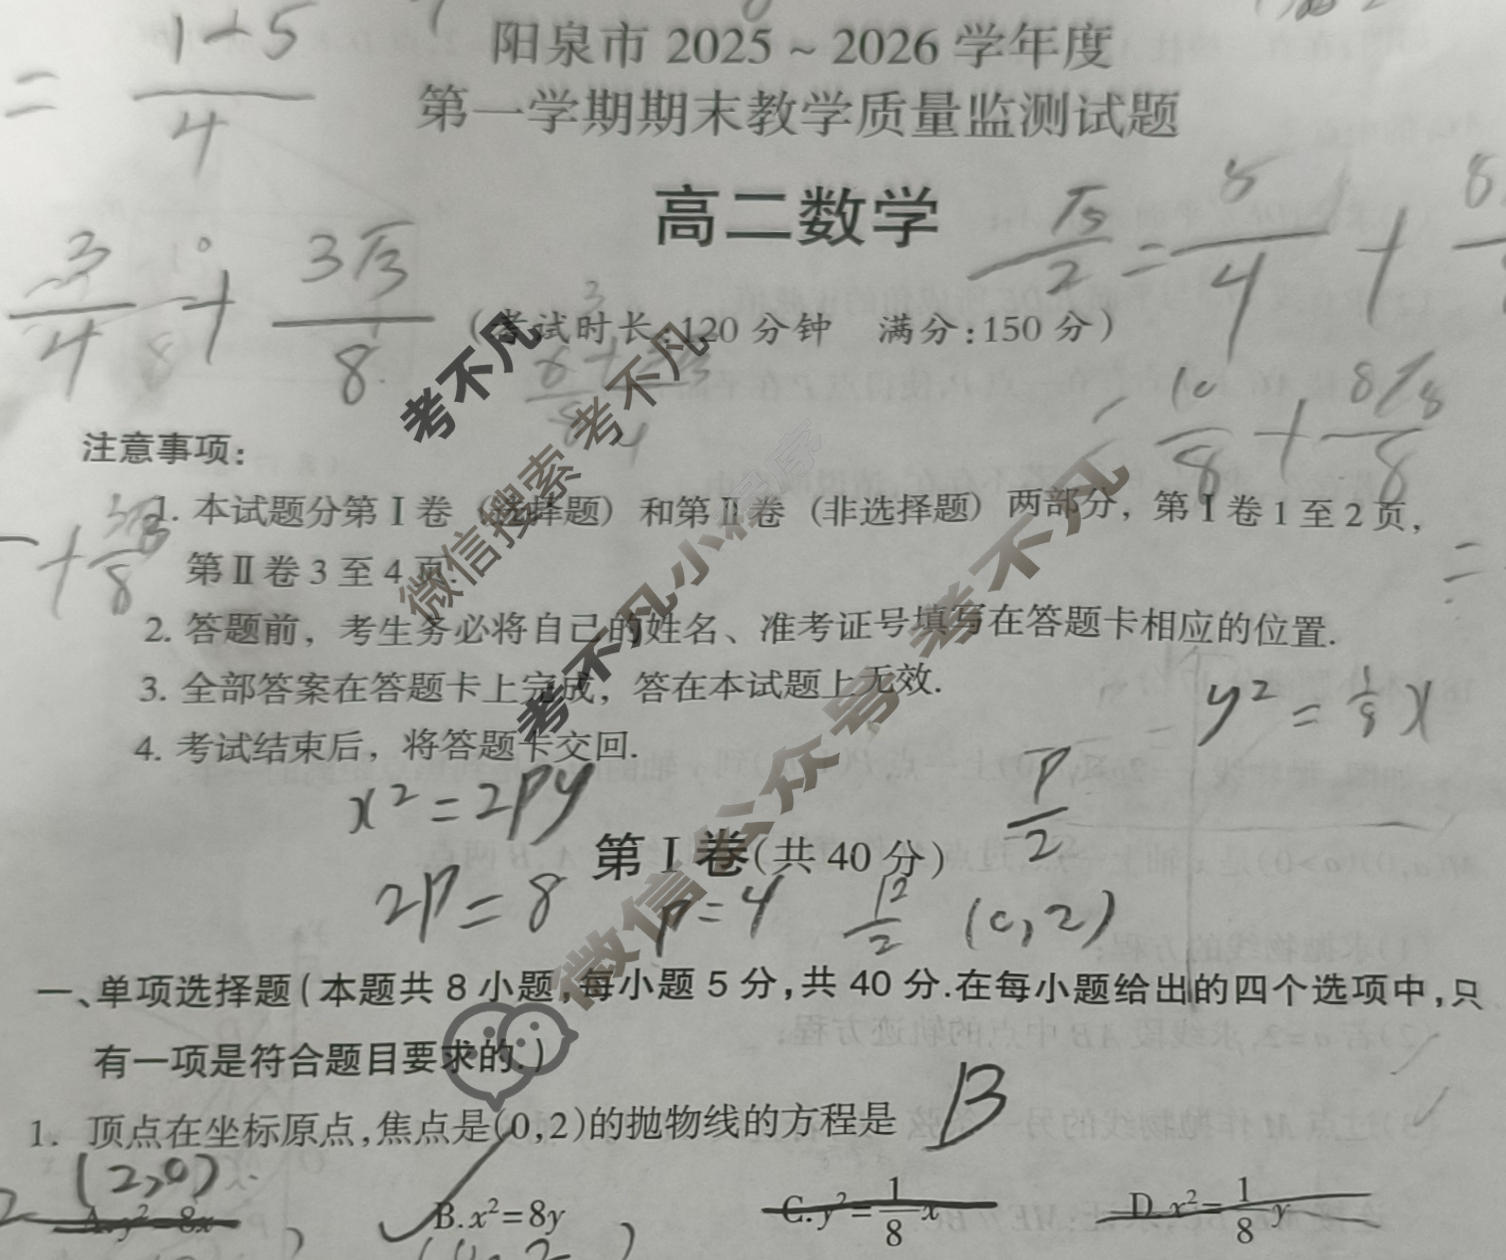 1+5
= ―
4
阳泉市 2025～2026 学年度
第一学期期末教学质量监测试题
高二数学
3/4 + 3√3/8
(考试时长:120 分钟 满分:150 分)
10/8 +
注意事项:
1. 本试题分第Ⅰ卷 (选择题) 和第Ⅱ卷 (非选择题) 两部分, 第Ⅰ卷 1 至 2 页,
第Ⅱ卷 3 至 4 页.
2. 答题前, 考生务必将自己的姓名、准考证号填写在答题卡相应的位置.
3. 全部答案在答题卡上完成, 答在本试题上无效.
y² = 1/8 x
4. 考试结束后, 将答题卡交回.
x² = 2py
P/2
第Ⅰ卷(共 40 分)
2P = 8 P = 4 (0,2)
一、单项选择题(本题共 8 小题,每小题 5 分,共 40 分.在每小题给出的四个选项中,只
有一项是符合题目要求的.)
1. 顶点在坐标原点,焦点是(0,2)的抛物线的方程是 B
(2,0)
A.y²=8x B.x²=8y C.y²=1/8 x D.x²=1/8 y
考不凡
微信搜索 考不凡
考不凡小程序
微信公众号 考不凡